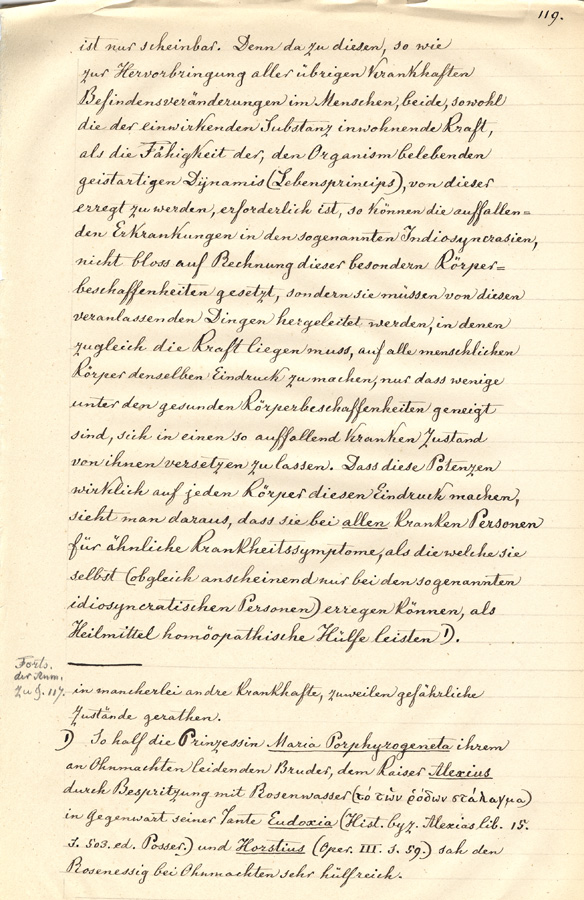 119.
ist nur scheinbar. Denn da zu diesen, so wie
zur Hervorbringung aller übrigen krankhaften
Befindensveränderungen im Menschen, beide, sowohl
die der einwirkenden Substanz inwohnende Kraft,
als die Fähigkeit der, den Organism belebenden
geistartigen Dÿnamis (Lebensprincips), von dieser
erregt zu werden, erforderlich ist, so können die auffallen=
den Erkrankungen in den sogenannten Indiosyncrasien,
nicht bloss auf Rechnung dieser besondern Körper=
beschaffenheiten gesetzt, sondern sie müssen von diesen
veranlassenden Dingen hergeleitet werden, in denen
zugleich die Kraft liegen muss, auf alle menschlichen
Körper denselben Eindruck zu machen, nur dass wenige
unter den gesunden Körperbeschaffenheiten geneigt
sind, sich in einen so auffallend kranken Zustand
von ihnen versetzen zu lassen. Dass diese Potenzen
wirklich auf jeden Körper diesen Eindruck machen,
sieht man daraus, dass sie bei allen kranken Personen
für ähnliche Krankheitssymptome, als die welche sie
selbst (obgleich anscheinend nur bei den sogenannten
idiosyncratischen Personen) erregen können, als
Heilmittel homöopathische Hülfe leisten 1).
Forts.
der Anm.
zu §. 117.
in mancherlei andre krankhafte, zuweilen gefährliche
Zustände gerathen.
1) So half die Prinzessin Maria Porphyrogeneta ihrem
an Ohnmachten leidenden Bruder, dem Kaiser Alexius
durch Bespritzung mit Rosenwasser (τό τῶν ῥόδων στάλαγμα)
in Gegenwart seiner Tante Eudoxia (Hist. byz. Alexias lib. 15.
S. 503. ed. Posser.) und Horstius (Oper. III. S. 59.) sah den
Rosenessig bei Ohnmachten sehr hülfreich.